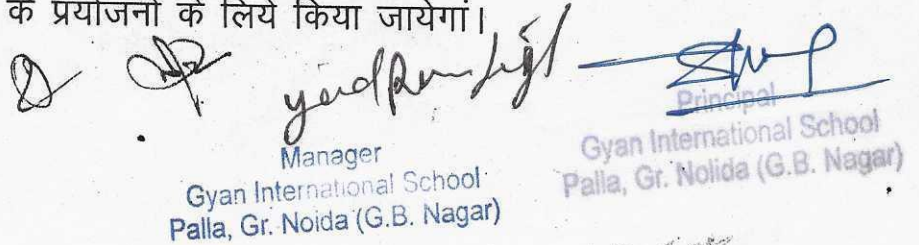 के प्रयोजनों के लिये किया जायेगां।
Manager
Gyan International School
Palla, Gr. Noida (G.B. Nagar)
Principal
Gyan International School
Palla, Gr. Nolida (G.B. Nagar)